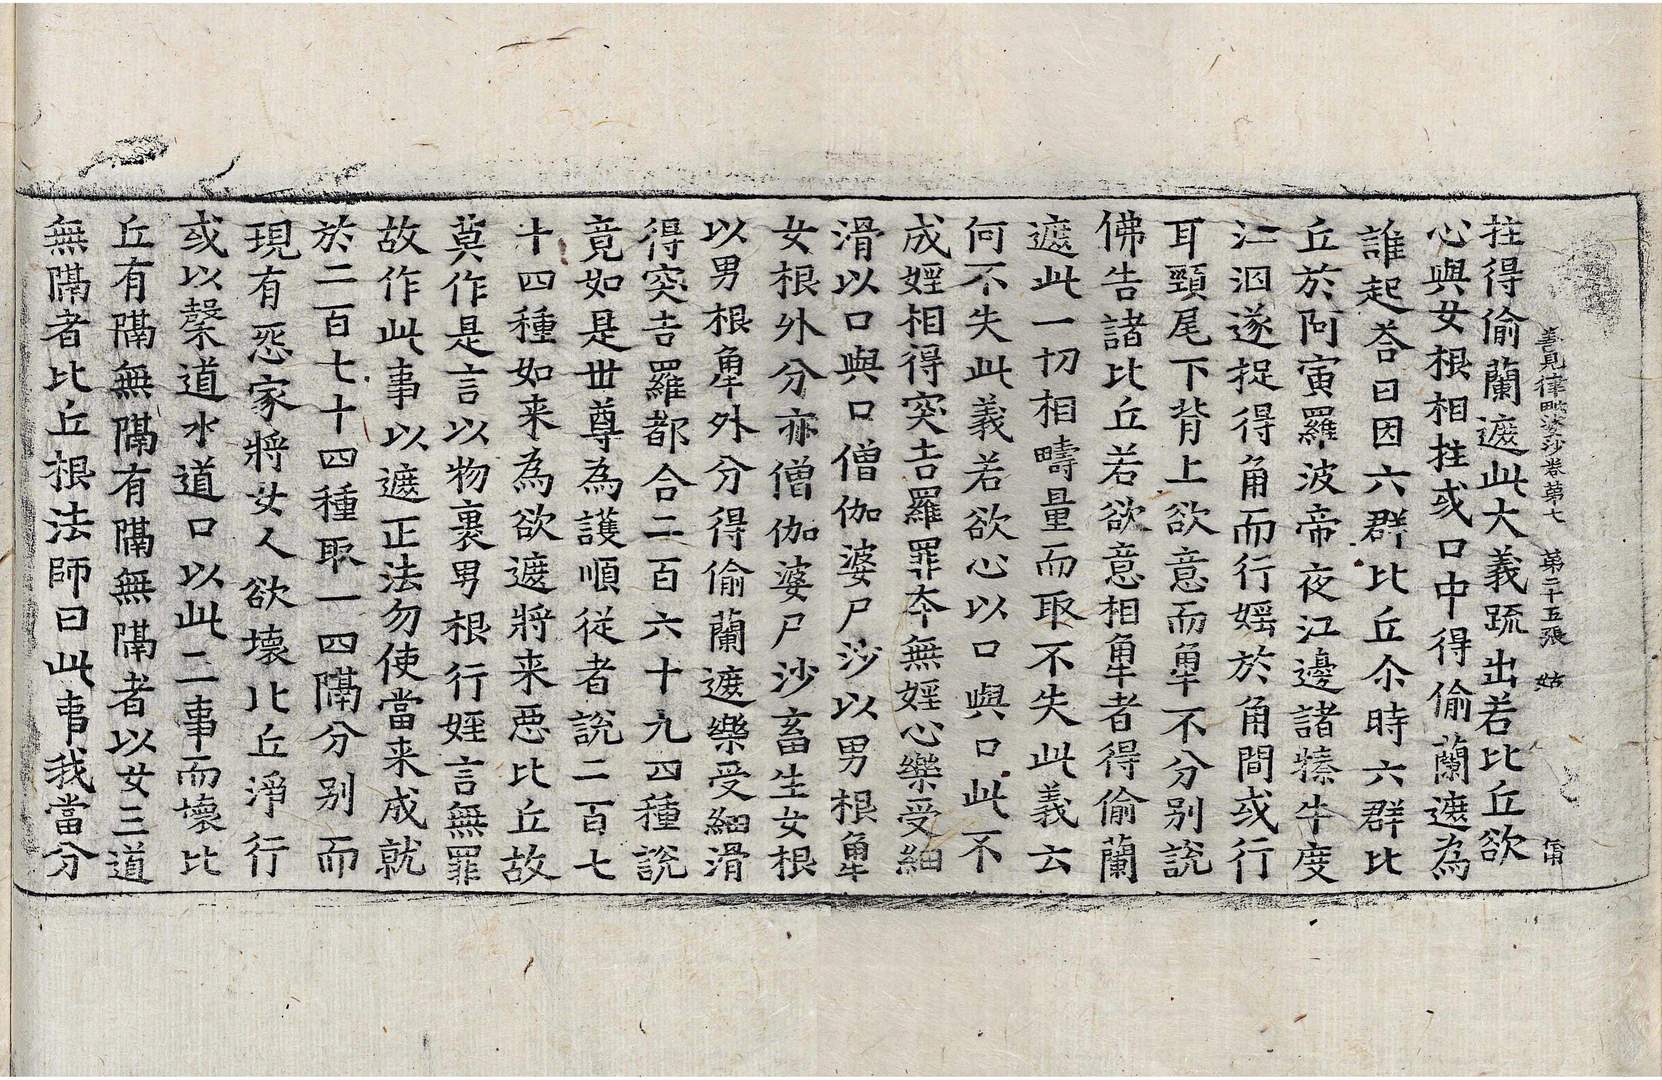 善見律毗婆沙卷第七　第二十五張　姑
拄得偷蘭遮此大義䟽出若比丘欲
心與女根相拄或口中得偷蘭遮為
誰起荅曰因六群比丘尒時六群比
丘於阿寅羅波帝夜江邊諸㹌牛度
江洄遂捉得角而行婬於角間或行
耳頸尾下背上欲意而𤛓不分別說
佛告諸比丘若欲意相𤛓者得偷蘭
遮此一切相疇量而取不失此義云
何不失此義若欲心以口與口此不
成婬相得突吉羅罪夲無婬心樂受細
滑以口與口僧伽婆尸沙以男根𤛓
女根外分亦僧伽婆尸沙畜生女根
以男根𤛓外分得偷蘭遮樂受細滑
得突吉羅都合二百六十九四種說
竟如是世尊為護順從者說二百七
十四種如来為欲遮將来惡比丘故
莫作是言以物裹男根行婬言無罪
故作此事以遮正法勿使當来成就
於二百七十四種取一四隔分別而
現有怨家將女人欲壞比丘淨行
或以槃道水道口以此二事而壞比
丘有隔無隔有隔無隔者以女三道
無隔者比丘根法師曰此事我當分